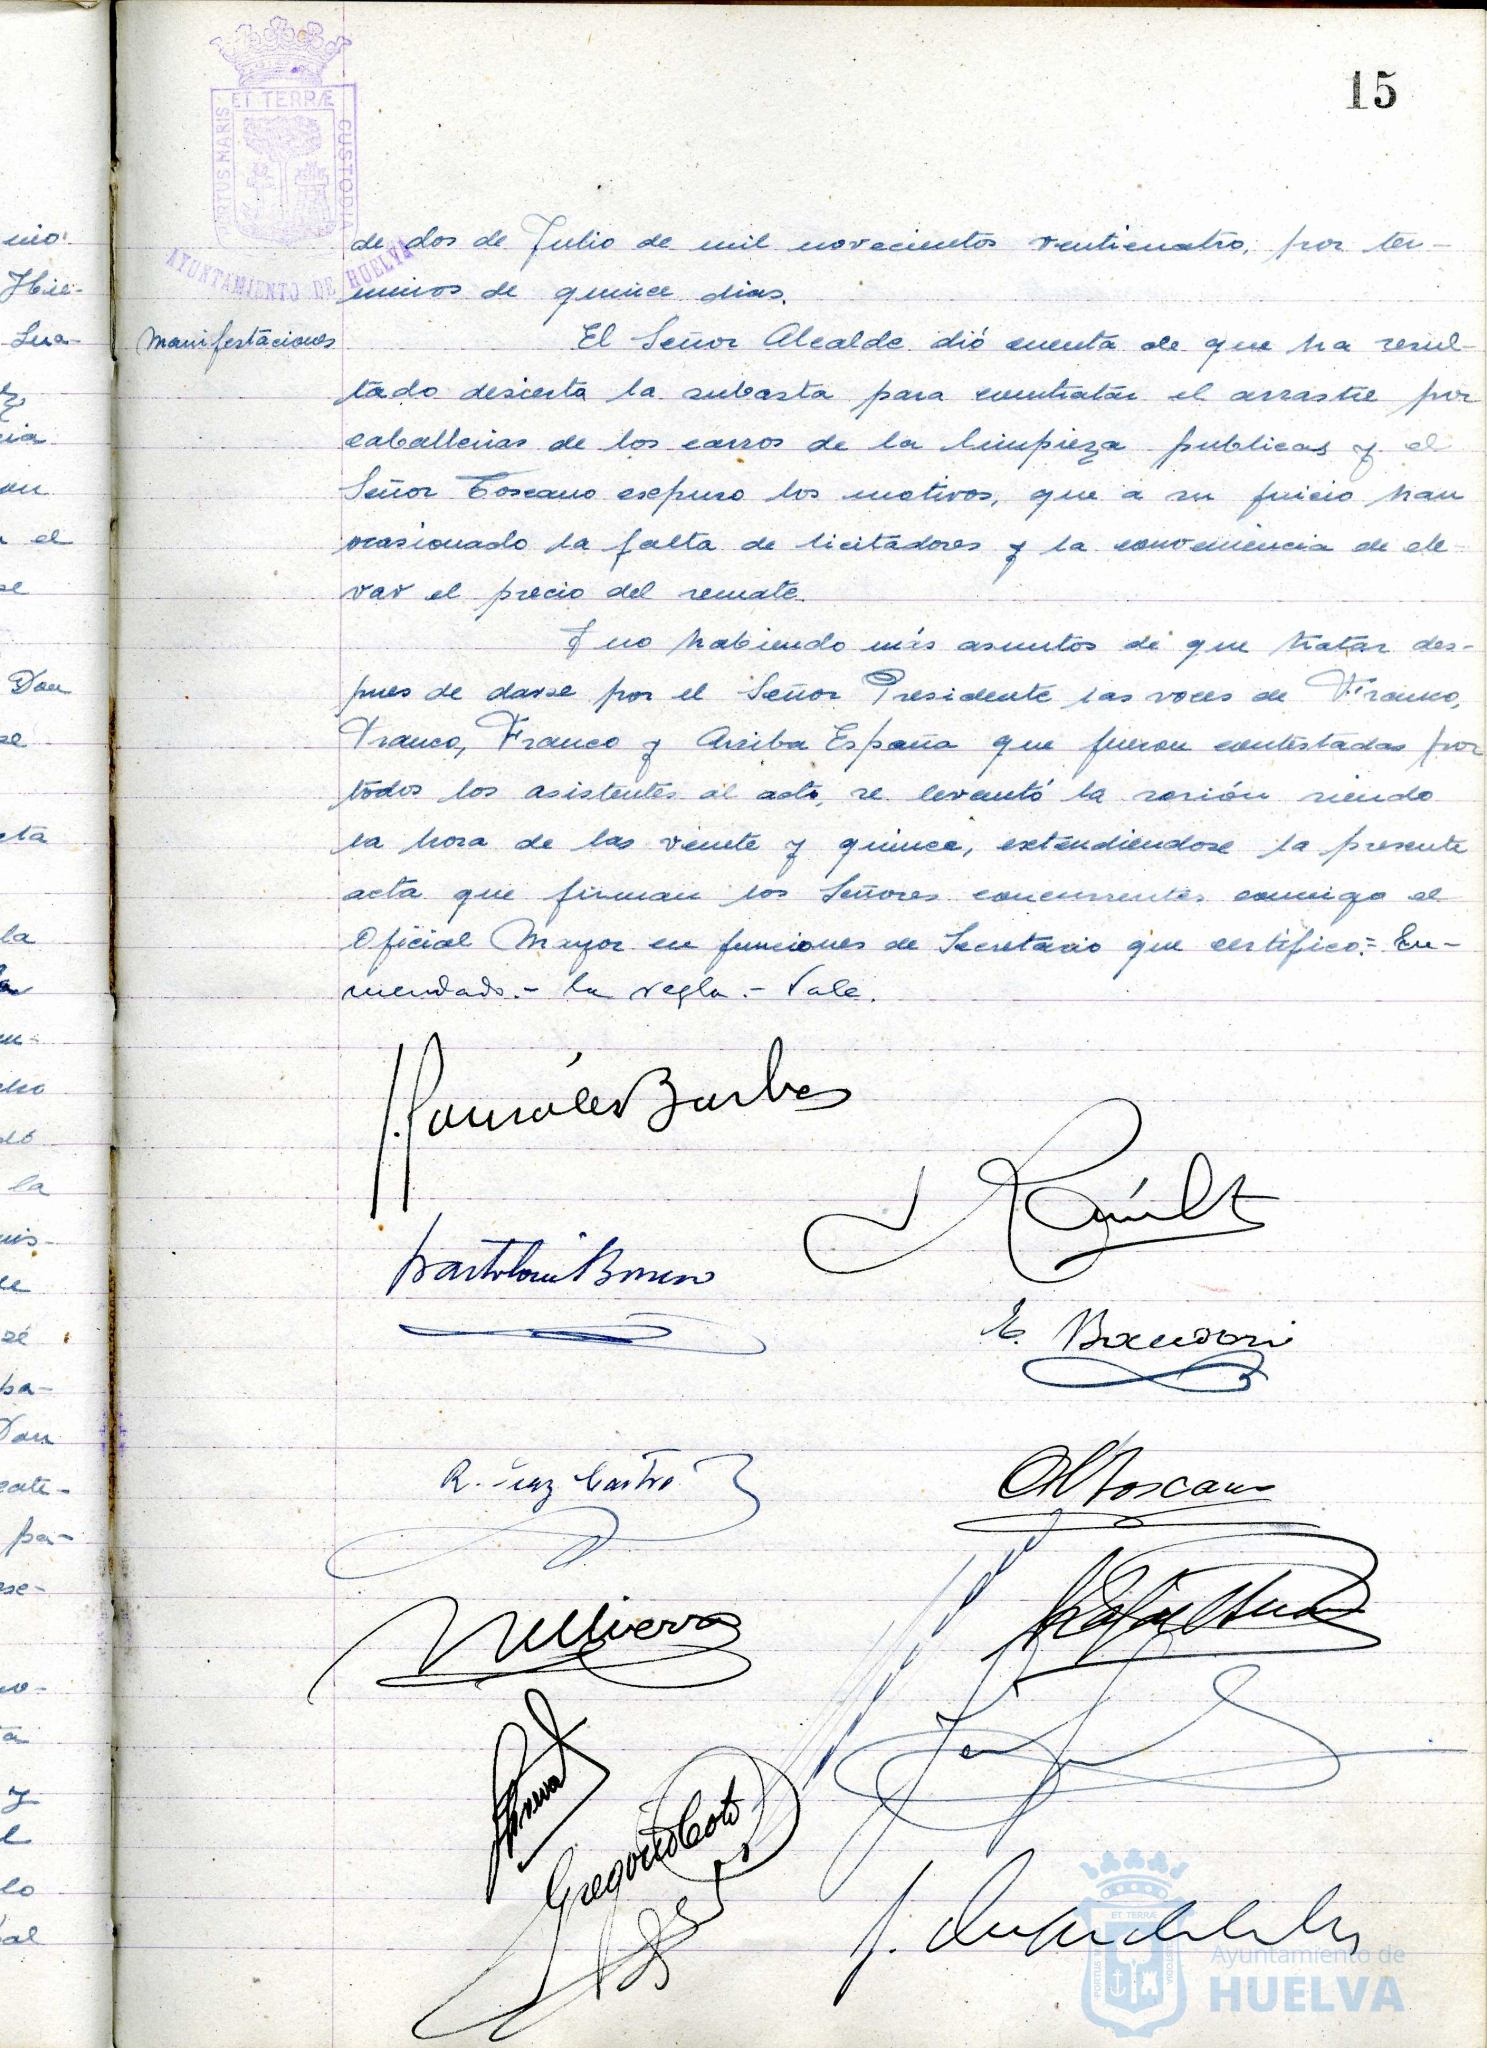 15
ET TERRÆ
PORTUS MARIS
CUSTODIA
AYUNTAMIENTO DE HUELVA
de dos de Julio de mil novecientos venticuatro, por ter-
minos de quince dias.
Manifestaciones
El Señor Alcalde dió cuenta de que ha resul-
tado desierta la subasta para contratar el arrastre por
caballerias de los carros de la limpieza publicas y el
Señor Toscano expuso los motivos, que a su juicio han
ocasionado la falta de licitadores y la conveniencia de ele-
var el precio del remate.
Y no habiendo más asuntos de que tratar des-
pues de darse por el Señor Presidente las voces de Franco,
Franco, Franco y Arriba España que fueron contestadas por
todos los asistentes al acto, se levantó la sesión siendo
la hora de las veinte y quince, extendiendose la presente
acta que firman los Señores concurrentes conmigo el
Oficial Mayor en funciones de Secretario que certifico.= En-
mendado.- la regla.- Vale.
J. González Barba
R. Castro
Toscano
Gregorio Coto
Ayuntamiento de
HUELVA